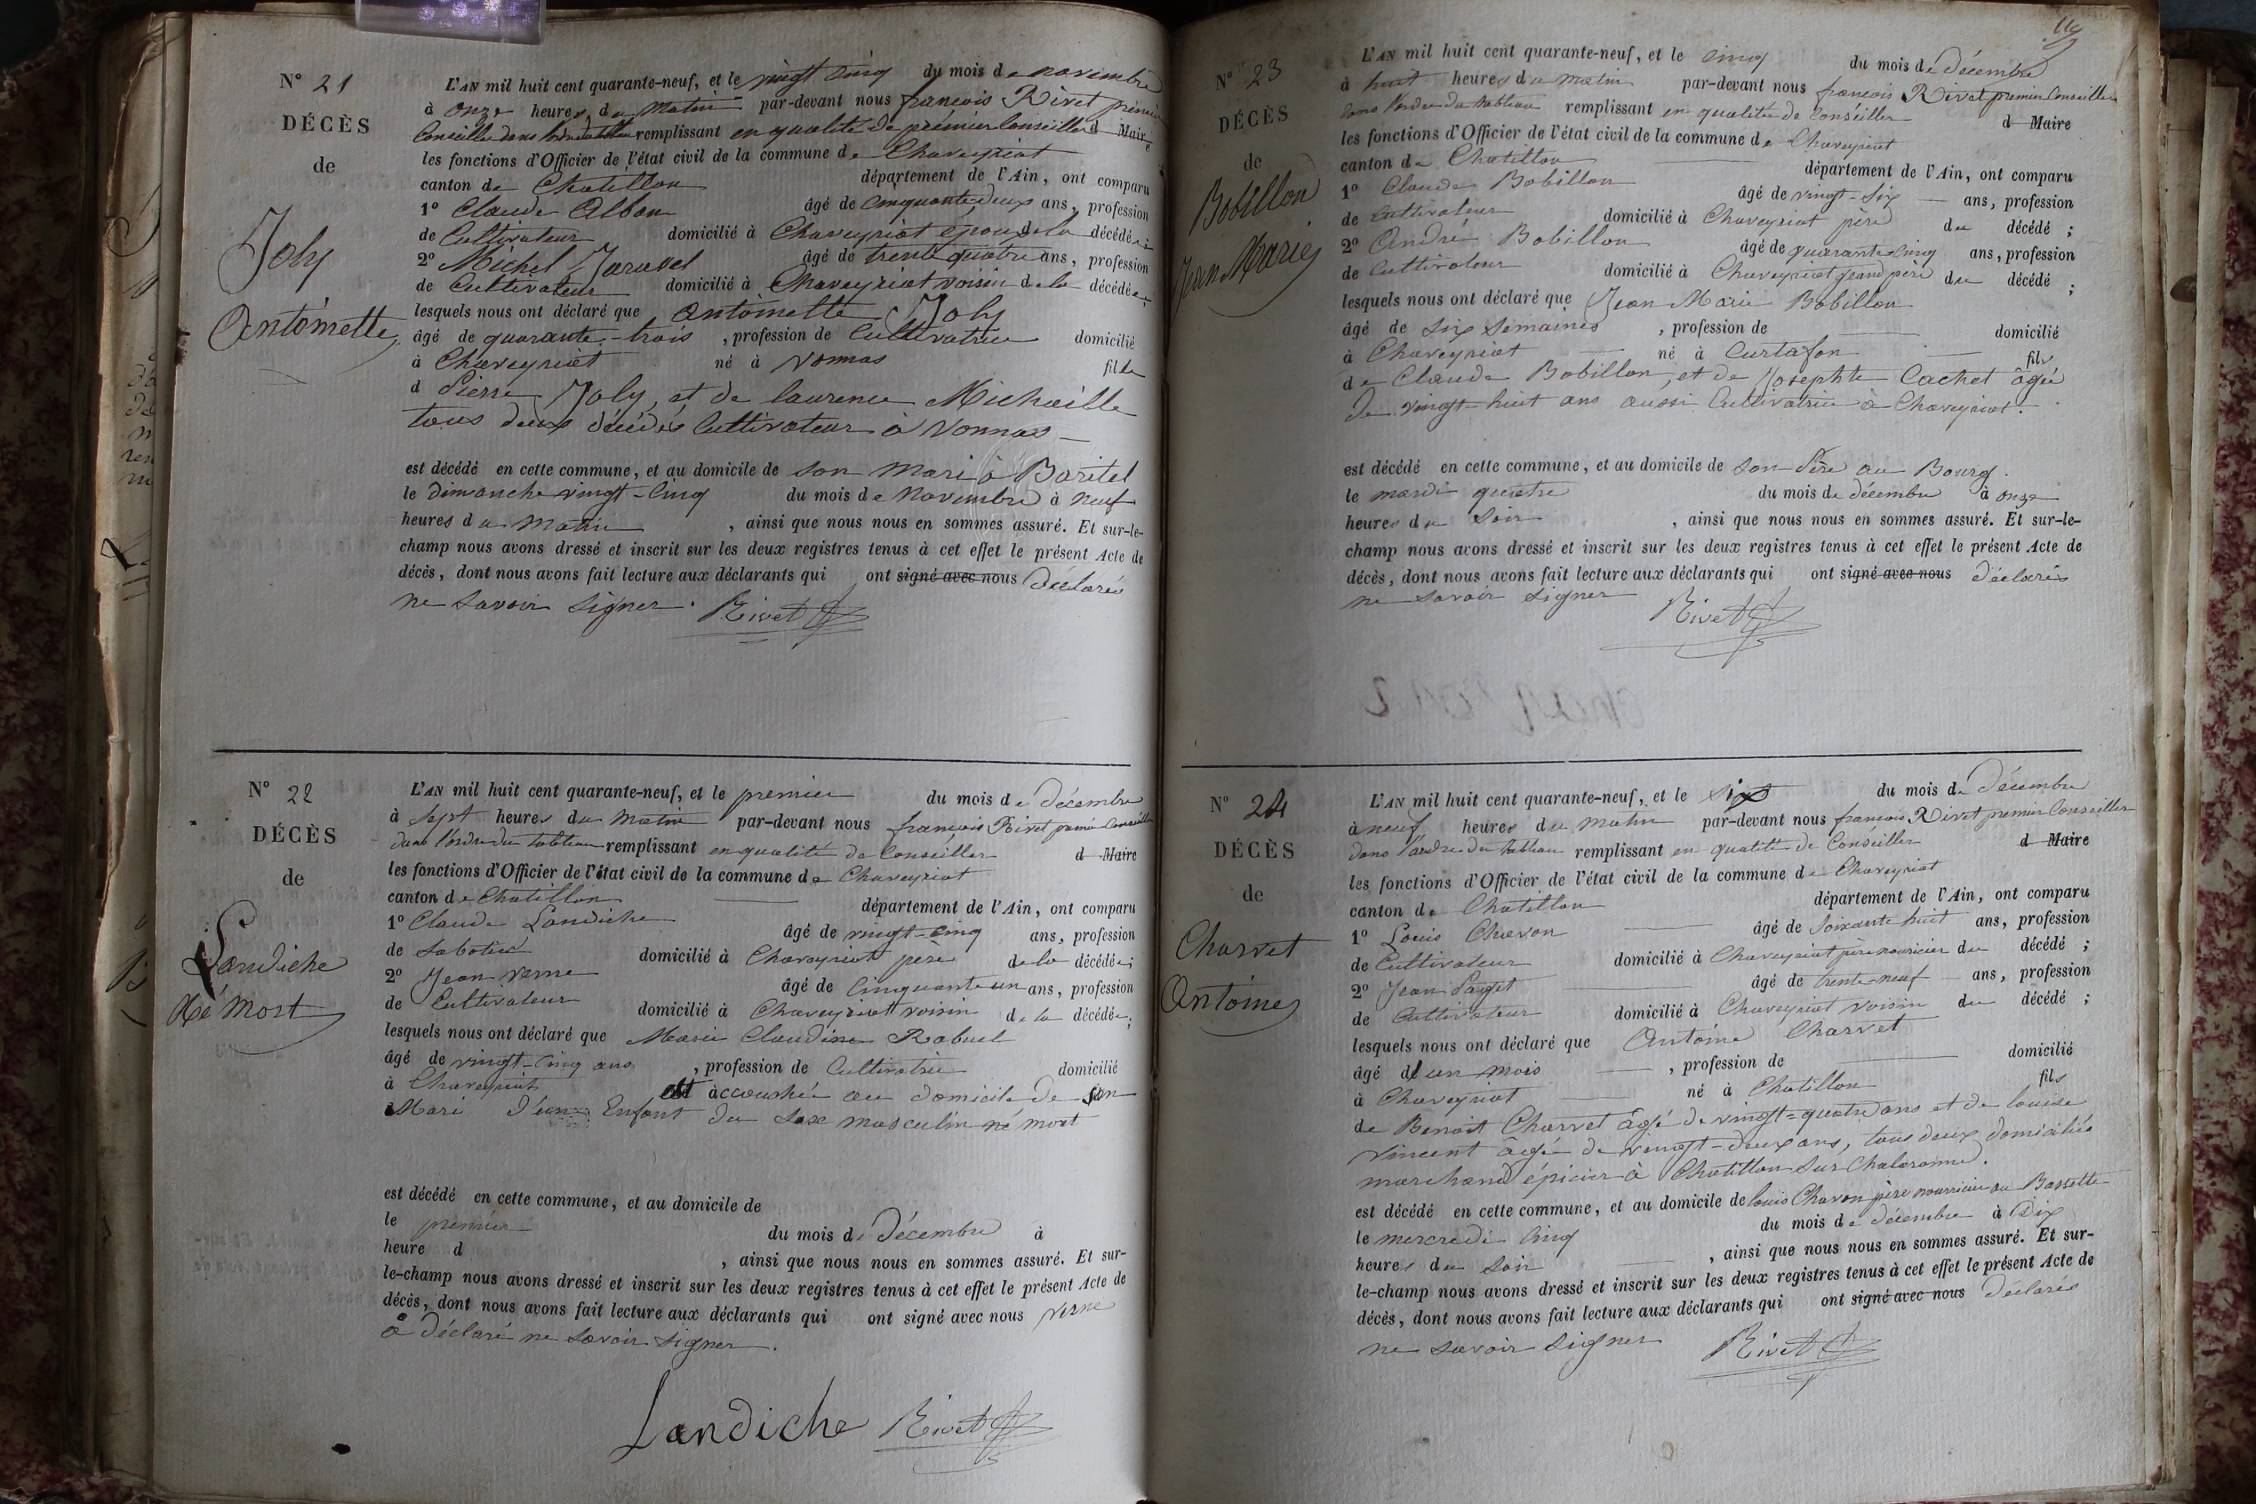 N° 21
DÉCÈS
de
Joly
Antoinette
L'AN mil huit cent quarante-neuf, et le vingt cinq du mois de novembre
à onze heures du matin par-devant nous francois Rivet premier
Conseiller dans remplissant en qualité de prémier Conseiller d Maire
les fonctions d'Officier de l'état civil de la commune de Chaveyriat
canton de Chatillon département de l'Ain, ont comparu
1° Claude Alban âgé de cinquante deux ans, profession
de Cultivateur domicilié à Chaveyriat époux de la décédée ;
2° Michel Jaravel âgé de trente quatre ans, profession
de Cultivateur domicilié à Chaveyriat voisin de la décédée ;
lesquels nous ont déclaré que Antoinette Joly
âgé de quarante-trois , profession de Cultivatrice domicilié
à Chaveyriat né à Vonnas fille
d Pierre Joly, et de laurence Michaille
tous deux décédés Cultivateur à Vonnas
est décédé en cette commune, et au domicile de son mari à Baritel
le dimanche vingt-cinq du mois de novembre à neuf
heures du matin , ainsi que nous nous en sommes assuré. Et sur-le-
champ nous avons dressé et inscrit sur les deux registres tenus à cet effet le présent Acte de
décès, dont nous avons fait lecture aux déclarants qui ont signé avec nous déclarés
ne savoir signer. Rivet
N° 22
DÉCÈS
de
Landiche
Né Mort
L'AN mil huit cent quarante-neuf, et le premier du mois de décembre
à sept heures du matin par-devant nous francois Rivet premier Conseiller
dans l'ordre du tableau remplissant en qualité de Conseiller d Maire
les fonctions d'Officier de l'état civil de la commune de Chaveyriat
canton de Chatillon département de l'Ain, ont comparu
1° Claude Landiche âgé de vingt-cinq ans, profession
de Sabotier domicilié à Chaveyriat père de la décédée ;
2° Jean Verne âgé de Cinquante un ans, profession
de Cultivateur domicilié à Chaveyriat voisin de la décédée ;
lesquels nous ont déclaré que Marie Claudine Rabuel
âgé de vingt-cinq ans , profession de Cultivatrice domicilié
à Chaveyriat est accouchée au domicile de son
Mari d'un Enfant du sexe masculin né mort
est décédé en cette commune, et au domicile de
le premier du mois de décembre à
heure d , ainsi que nous nous en sommes assuré. Et sur-
le-champ nous avons dressé et inscrit sur les deux registres tenus à cet effet le présent Acte de
décès, dont nous avons fait lecture aux déclarants qui ont signé avec nous Verne
a déclaré ne savoir signer.
Landiche Rivet
119
N° 23
DÉCÈS
de
Bobillon
Jean Marie
L'AN mil huit cent quarante-neuf, et le cinq du mois de décembre
à huit heures du matin par-devant nous francois Rivet premier Conseiller
dans l'ordre du tableau remplissant en qualité de Conséiller d Maire
les fonctions d'Officier de l'état civil de la commune de Chaveyriat
canton de Chatillon département de l'Ain, ont comparu
1° Claude Bobillon âgé de vingt-six ans, profession
de Cultivateur domicilié à Chaveyriat père du décédé ;
2° André Bobillon âgé de quarante cinq ans, profession
de Cultivateur domicilié à Chaveyriat grand père du décédé ;
lesquels nous ont déclaré que Jean Marie Bobillon
âgé de six semaines , profession de domicilié
à Chaveyriat né à Curtafon fils
de Claude Bobillon, et de Josephte Cachet âgée
de vingt-huit ans aussi Cultivatrice à Chaveyriat.
est décédé en cette commune, et au domicile de son Père au Bourg.
le mardi quatre du mois de décembre à onze
heures du soir , ainsi que nous nous en sommes assuré. Et sur-le-
champ nous avons dressé et inscrit sur les deux registres tenus à cet effet le présent Acte de
décès, dont nous avons fait lecture aux déclarants qui ont signé avec nous déclarés
ne savoir signer Rivet
N° 24
DÉCÈS
de
Charvet
Antoine
L'AN mil huit cent quarante-neuf, et le six du mois de Décembre
à neuf heures du matin par-devant nous francois Rivet premier Conseiller
dans l'ordre du tableau remplissant en qualité de Conséiller d Maire
les fonctions d'Officier de l'état civil de la commune de Chaveyriat
canton de Chatillon département de l'Ain, ont comparu
1° Louis Chavon âgé de Soixante huit ans, profession
de Cultivateur domicilié à Chaveyriat père nourricier du décédé ;
2° Jean Paget âgé de trente-neuf ans, profession
de Cultivateur domicilié à Chaveyriat voisin du décédé ;
lesquels nous ont déclaré que Antoine Charvet
âgé d'un mois , profession de domicilié
à Chaveyriat né à Chatillon fils
de Benoit Charvet âgé de vingt-quatre ans et de louise
Vincent âgée de vingt-deux ans, tous deux domiciliés
marchand épicier à Chatillon sur Chalaronne.
est décédé en cette commune, et au domicile de louis Chavon père nourricier au Bassette
le mercredi cinq du mois de décembre à Dix
heures du soir , ainsi que nous nous en sommes assuré. Et sur-
le-champ nous avons dressé et inscrit sur les deux registres tenus à cet effet le présent Acte de
décès, dont nous avons fait lecture aux déclarants qui ont signé avec nous déclarés
ne savoir signer Rivet